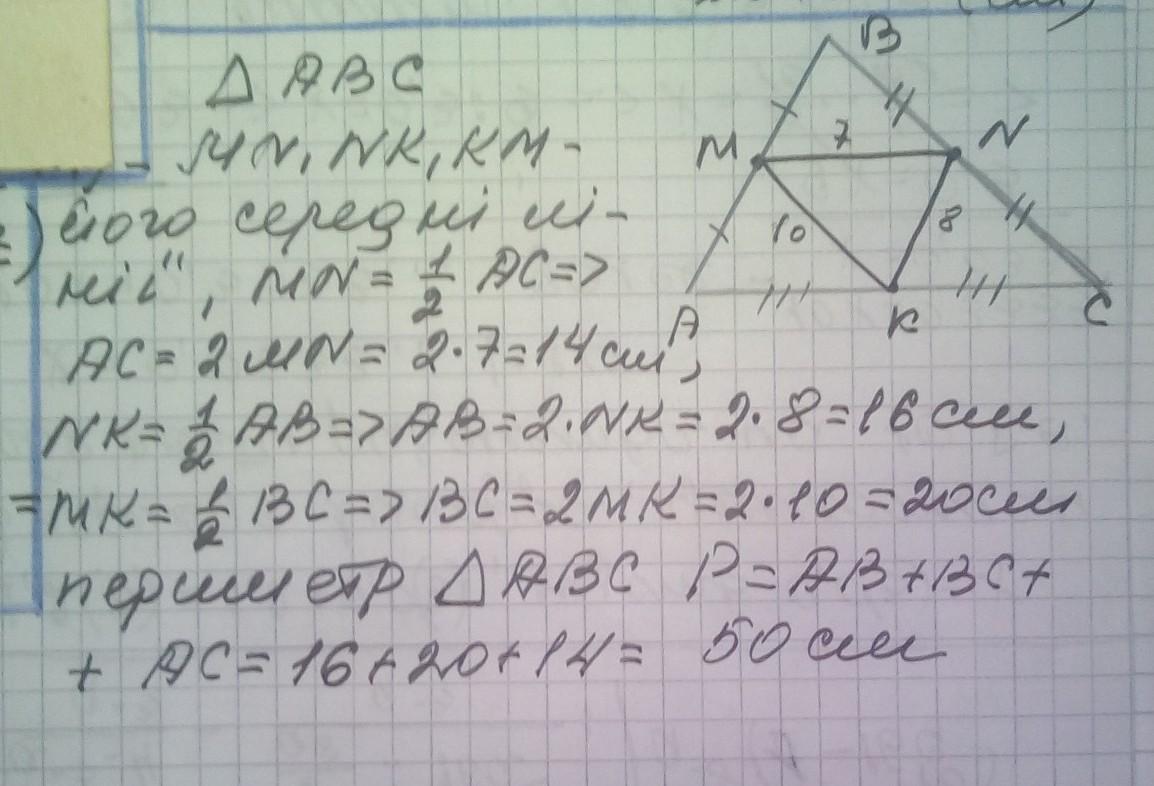 (см)
△ ABC
- MN, NK, KM -
його середні лі-
нії", MN = 1/2 AC =>
AC = 2 MN = 2·7 = 14 см,
NK = 1/2 AB => AB = 2·NK = 2·8 = 16 см,
= MK = 1/2 BC => BC = 2MK = 2·10 = 20 см
периметр △ ABC P = AB + BC +
+ AC = 16 + 20 + 14 = 50 см
B
M 7 N
10 8
A K C